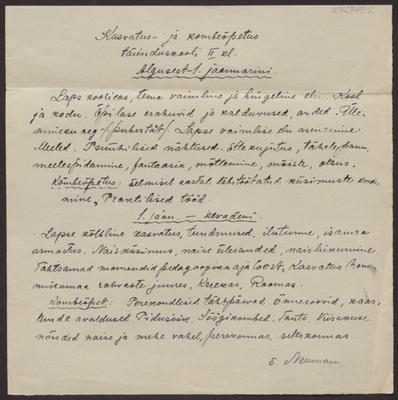 Kasvatus- ja kombeõpetus
täienduskooli II kl.
Algusest-1. jaanuarini.
Laps koolieas, tema vaimline ja hingeline elu. Kool
ja kodu. Õpilase erahuvid ja kalduvused, anded. Üle-
mineku aeg (puberteet). Lapse vaimlise elu arenemine
Meeled. Psüühilised nähtused. Ettekujutus, tähelepanu,
meelespidamine, fantaasia, mõtlemine, mõiste, otsus.
Kombeõpetus: Eelmisel aastal läbitöötatud küsimuste
mine, Praktilised tööd.
1. jaan. – kevadeni.
Lapse kõlbline kasvatus, tundmused, ilutunne, isamaa
armastus. Naisküsimus, naise ülesanded, naisliikumine
Tähtsamad momendid pedagoogika ajaloost, Kasvatus
muistsamate rahvaste juures, Kreekas, Roomas.
Kombeõpet: Perekondlised tähtpäevad. Õnnesoovid, kaas-
tunde avaldused. Pidusöök. Söögikombed. Tants. Viisakuse
nõuded naise ja mehe vahel, perekonnas, seltskonnas.
E. Neuman